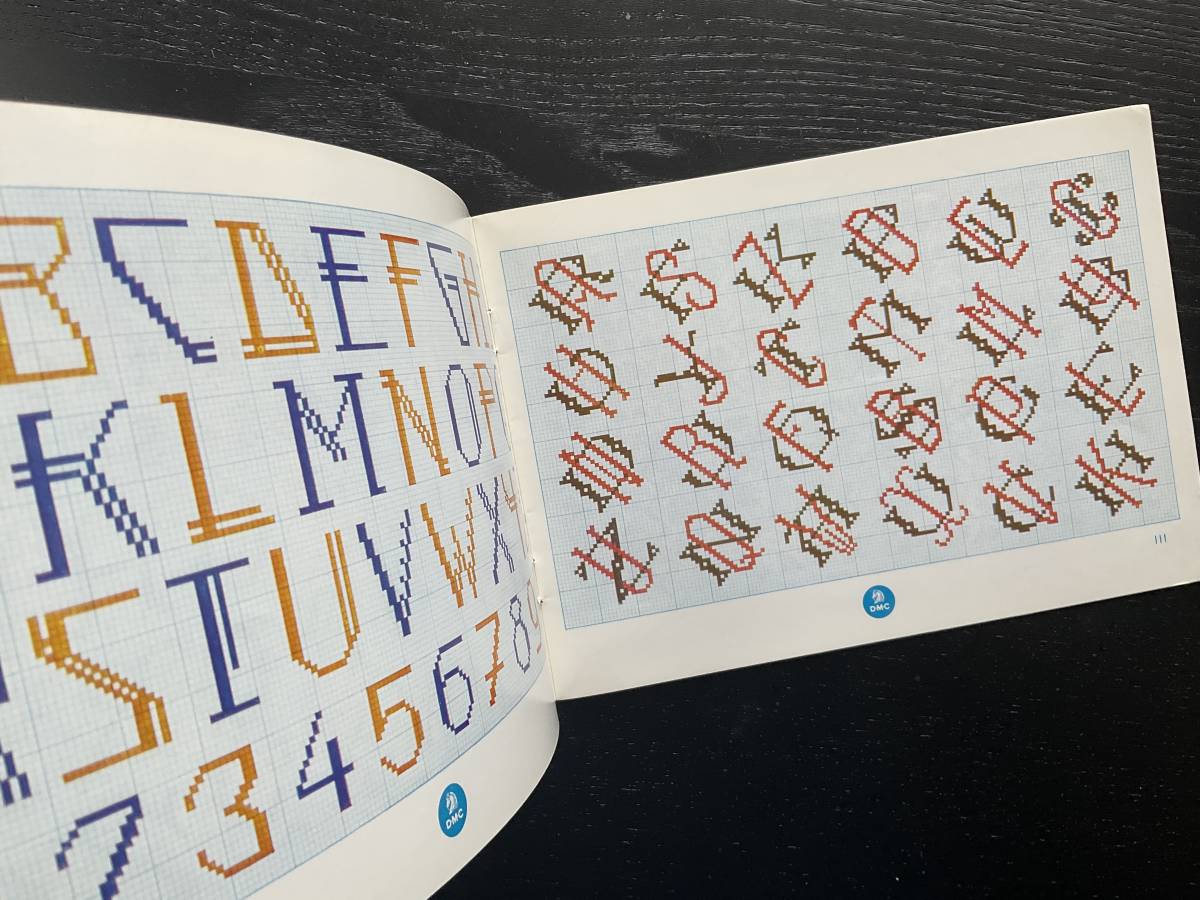 B C D E F G H
K L M N O P
S T U V W X
2 3 4 5 6 7 8
DMC
R S Z U C
J L Y M H
B F S O E
X O W V K
111
DMC